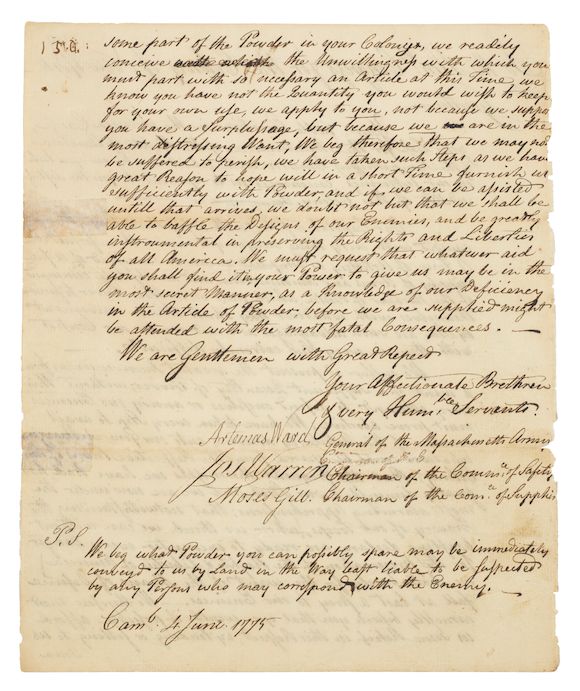 some part of the Powder in your Colony, we readily
conceive the Unwillingness with which you
must part with so necessary an Article at this Time, we
know you have not the Quantity you would wish to keep
for your own use, we apply to you, not because we suppo
you have a Surplusage, but because we are in the
most distressing Want, We beg therefore that we may no
be suffered to perish, we have taken such Steps, as we have
great Reason to hope will in a short Time furnish us
sufficiently with Powder, and if we can be assisted
untill that arrives, we doubt not but that we shall be
able to baffle the Designs of our Enemies, and be greatly
instrumental in preserving the Rights and Liberties
of all America. We must request that whatever aid
you shall find it in your Power to give us may be in the
most secret Manner, as a Knowledge of our Deficiency
in the Article of Powder before we are supplied might
be attended with the most fatal Consequences. —
We are Gentlemen with Great Respect
Your Affectionate Brethren
& very Humble Servants.
Artemas Ward General of the Massachusetts Army
Jos Warren Chairman of the Comme of Safety
Moses Gill. Chairman of the Come of Supplies
P.S.
We beg what Powder you can possibly spare may be immediately
convey'd to us by Land in the Way least liable to be suspected
by any Persons who may correspond with the Enemy. —
Camb. 4 June. 1775